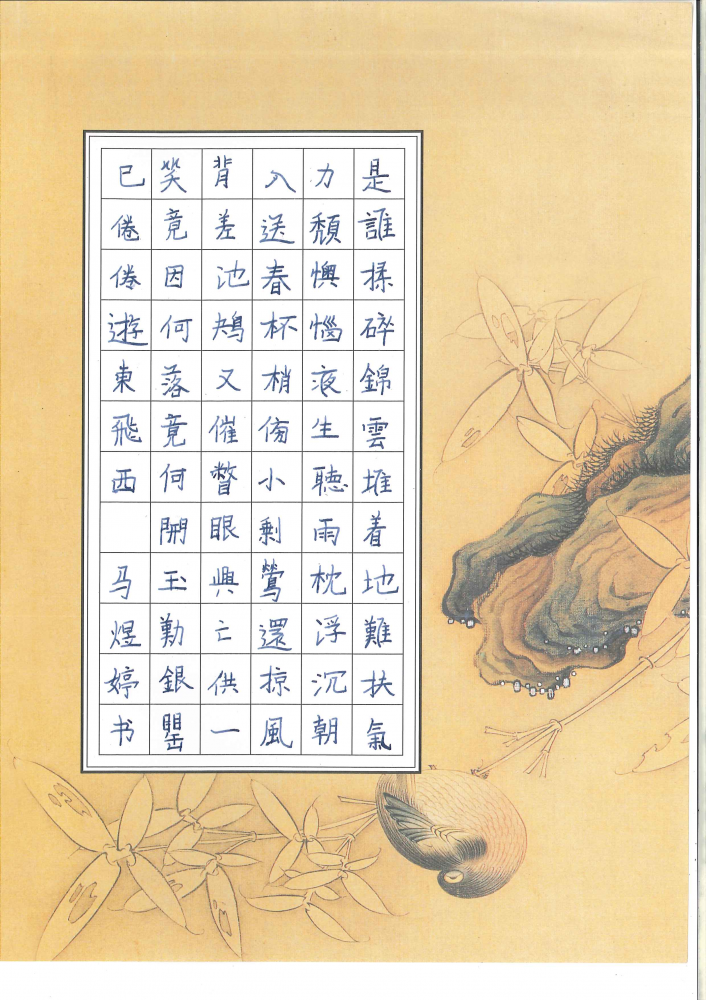 是誰揉碎錦雲堆着地難扶氣
力頹懊惱液生聽雨枕浮沉朝
入送春杯梢傍小剩鶯還掠風
背差池鴂又催瞥眼興亡供一
笑竟因何落竟何開玉勤銀罌
已倦倦遊東飛西 马煜婷书